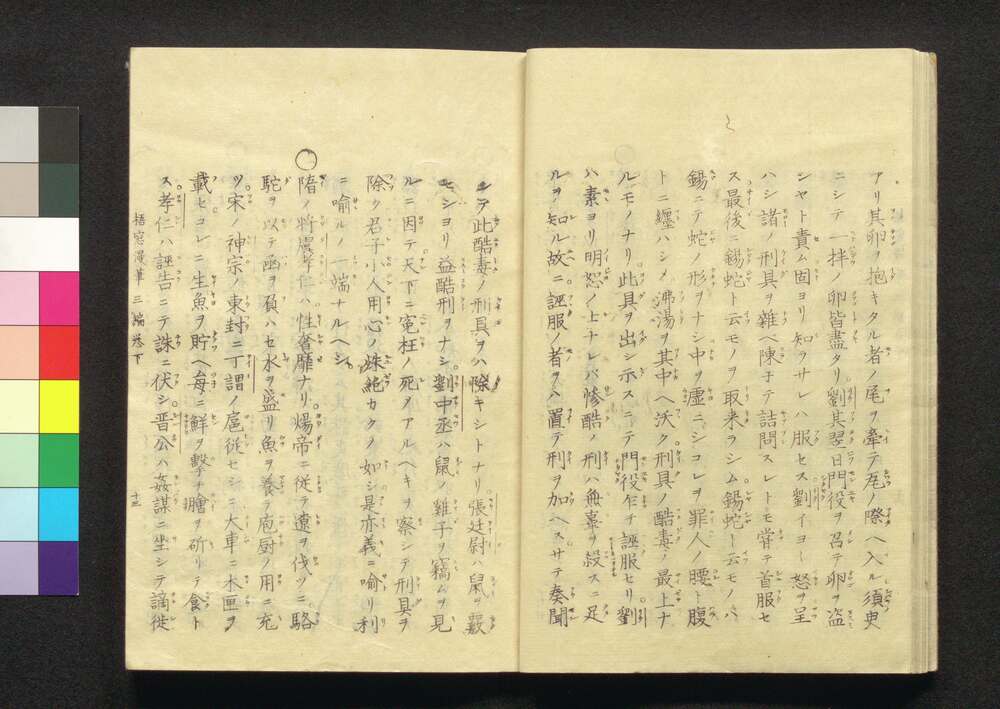 アリ其卵ヲ抱キタル者ノ尾ヲ牽テ瓦ノ際ヘ入ル須臾
ニシテ一拌ノ卵皆盡タリ劉其翌日門役ヲ召テ卵ヲ盗
シヤト責ム固ヨリ知ラサレハ服セス劉イヨ〳〵怒ヲ呈
ハシ諸ノ刑具ヲ雜ヘ陳子テ詰問スレトモ甞テ首服セ
ス最後ニ錫蛇ト云モノヲ取来ラシム錫蛇ト云モノハ
錫ニテ蛇ノ形ヲナシ中ヲ虚ニシコレヲ罪人ノ腰ト腹
トニ纏ハシメ沸湯ヲ其中ヘ沃ク刑具ノ酷毒ノ最上ナ
ルモノナリ此具ヲ出シ示スニテ門役乍チ誣服セリ劉
ハ素ヨリ明恕ノ士ナレバ惨酷ノ刑ハ無辜ヲ殺スニ足
ルヲ知ル故ニ誣服ノ者ヲハ置テ刑ヲ加ヘスサテ奏聞
シテ此酷毒ノ刑具ヲハ除キシトナリ張廷尉ハ鼠ヲ覈
セシヨリ益酷刑ヲナシ劉中丞ハ鼠ノ雞子ヲ竊ムヲ見
ルニ因テ天下ニ寃枉ノ死ノアルヘキヲ察シテ刑具ヲ
除ク君子小人用心ノ殊絶カクノ如シ是亦義ニ喩リ利
ニ喩ルノ一端ナルヘシ
○
隋ノ將虞孝仁ハ性奢靡ナリ煬帝ニ従テ遼ヲ伐ツニ駱
駝ヲ以テ函ヲ負ハセ水ヲ盛リ魚ヲ養テ庖厨ノ用ニ充
ツ宋ノ神宗ノ東封ニ丁謂ノ扈従セシニ大車ニ木匣ヲ
載セコレニ生魚ヲ貯ヘ毎ニ鮮ヲ撃チ膾ヲ斫リテ食ト
ス孝仁ハ誣告ニテ誅ニ伏シ晋公ハ姦謀ニ坐シテ謫徙
梧窓漫筆 三編巻下 十三